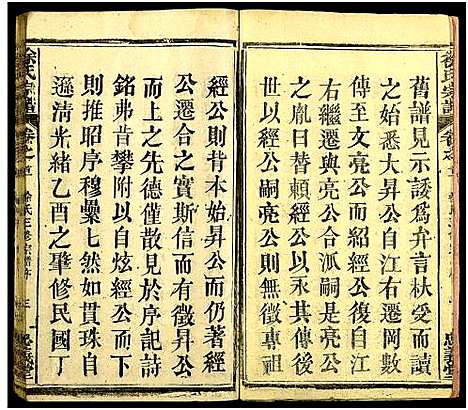 舊譜見示諉為弁言杕受而讀
之始悉大昇公自江右遷岡數
傳至文亮公而紹經公復自江
右繼遷與亮公合派嗣是亮公
之胤日替賴經公以永其傳後
世以經公嗣亮公者有徵專祖
經公則背本始昇公而仍著經
公遷合之實斯信而有徵昇公
而上之先德僅散見於序記詩
銘弗昔攀附以自炫經公而下
則推昭序穆纍七然如貫珠自
遜清光緒乙酉之肇修民國丁
徐氏宗譜
卷之首
三